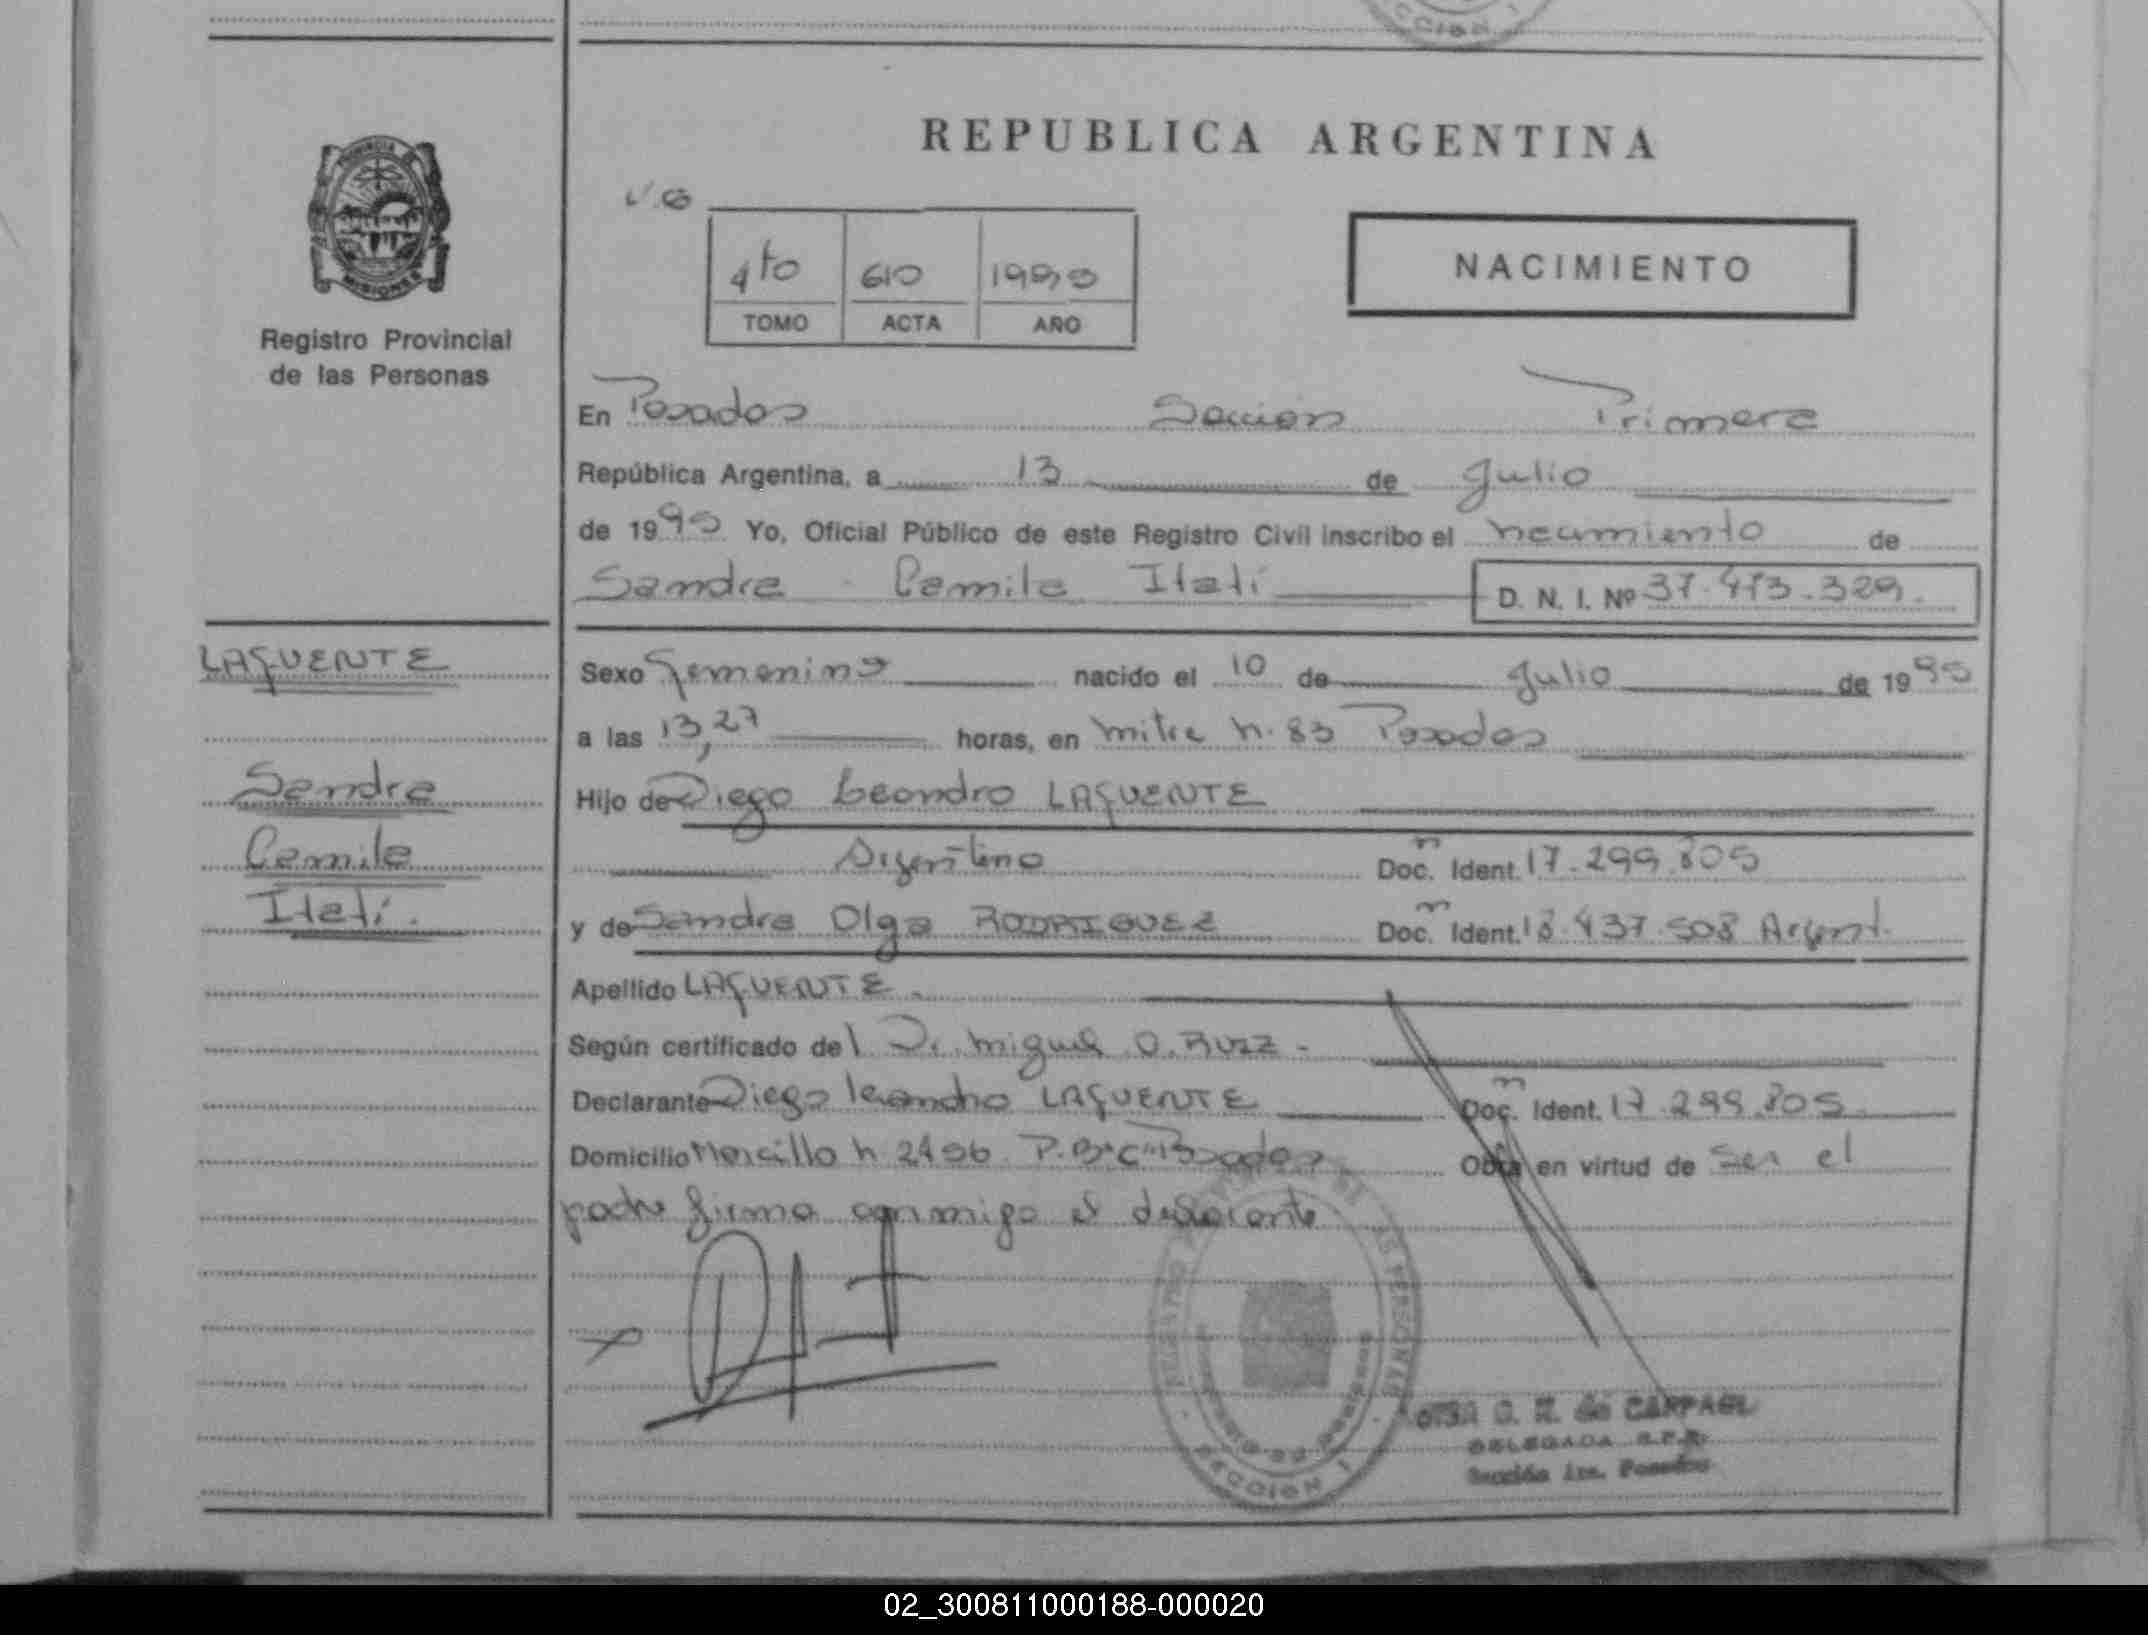 CCION 1
REPUBLICA ARGENTINA
PROVINCIA DE
MISIONES
Registro Provincial
de las Personas
4to 610 1990
TOMO ACTA AÑO
NACIMIENTO
En Posadas Sección Primera
República Argentina, a 13 de Julio
de 1990 Yo, Oficial Público de este Registro Civil inscribo el nacimiento de
Sandra Camila Itatí D. N. I. Nº 37.473.329.
LAFUENTE
Sandra
Camila
Itatí.
Sexo Femenino nacido el 10 de Julio de 1990
a las 13,27 horas, en Mitre n. 83 Posadas
Hijo de Diego Leandro LAFUENTE
Argentino Doc. n Ident. 17.299.805
y de Sandra Olga RODRIGUEZ Doc. n Ident. 18.437.508 Argent.
Apellido LAFUENTE.
Según certificado del Dr. Miguel O. RUIZ -
Declarante Diego Leandro LAFUENTE Doc. n Ident. 17.299.805
Domicilio n. 2456 Posadas Obra en virtud de Ser el
padre firma conmigo el declarante
REGISTRO PROVINCIAL DE LAS PERSONAS
SECCION 1
DE CARPAGL
DELEGADA R.P.P.
Sección 1ra. Posadas
02_300811000188-000020